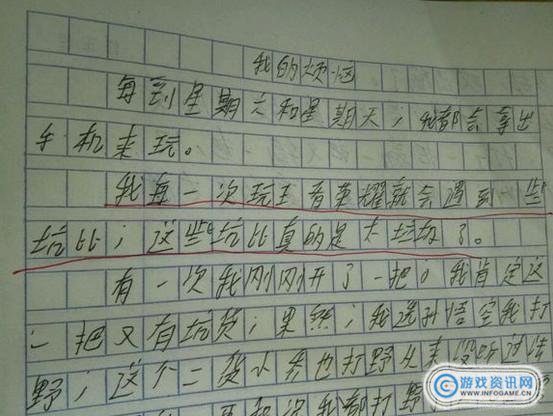 我的烦恼
每到星期六和星期天，我都会拿出
手机来玩。
我每一次玩王者荣耀就会遇到一些
坑比；这些坑比真的是太垃圾了。
有一次我刚刚开了一把。我肯定这
一把又有坑货；果然；我选孙悟空我打
野；这个二货小乔也打野从来没听过法
打野
游戏资讯网
WWW.INFOGAME.CN